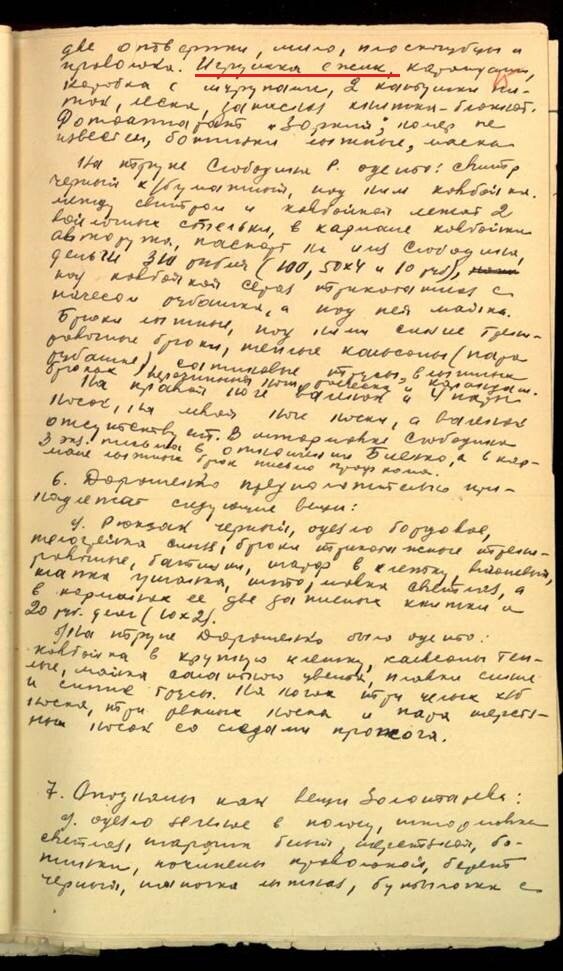 две отвертки, мыло, плоскогубцы и
проволока. Игрушка ежик, карандаши,
коробка с шурупами, 2 катушки ни-
ток, леска, записная книжка-блокнот.
Фотоаппарат "Зоркий", номер не
известен, ботинки лыжные, маска
На трупе Слободина Р. одето: свитр
черный х/бумажный, под ним ковбойка.
между свитром и ковбойкой лежат 2
войлочных стельки, в кармане ковбойки
авторучка, паспорт на имя Слободина,
деньги 310 рублей (100, 50х4 и 10 руб),
под ковбойкой серая трикотажная с
начесом рубашка, а под ней майка.
Брюки лыжные, под ними синие трени-
ровочные брюки, теплые кальсоны (пара
рубашке), сатиновые трусы, в лыжных
брюках перочинный нож, расческа и карандаш.
На правой ноге валенок и 4 пары
носок, на левой ноге носки, а валенок
отсутствует. В штормовке Слободина
3 экз. письма в, описании Биенко, а в кар-
мане лыжных брюк письмо профкома.
6. Дорошенко предположительно при-
надлежат следующие вещи:
а). Рюкзак черный, одеяло бордовое,
телогрейка синяя, брюки трикотажные трени-
ровочные, ботинки, шарф в клетку,
шапка ушанка, шт, майка светлая, а
в карманах ее две записные книжки и
20 руб. денег (10х2).
б) На трупе Дорошенко было одето:
ковбойка в крупную клетку, кальсоны теп-
лые, майка салатного цвета, плавки синие
и синие трусы. На ногах три целых х/б
носка, три рваных носка и пара шерстя-
ных носок со следами прожога.
7. Опознаны как вещи Золотарева:
а). одеяло зеленое в полосу, штормовка
светлая, шарфик белый, шерстяной, бо-
тинки, починены проволокой, берет
черный, шапочка лыжная, бутылочка с